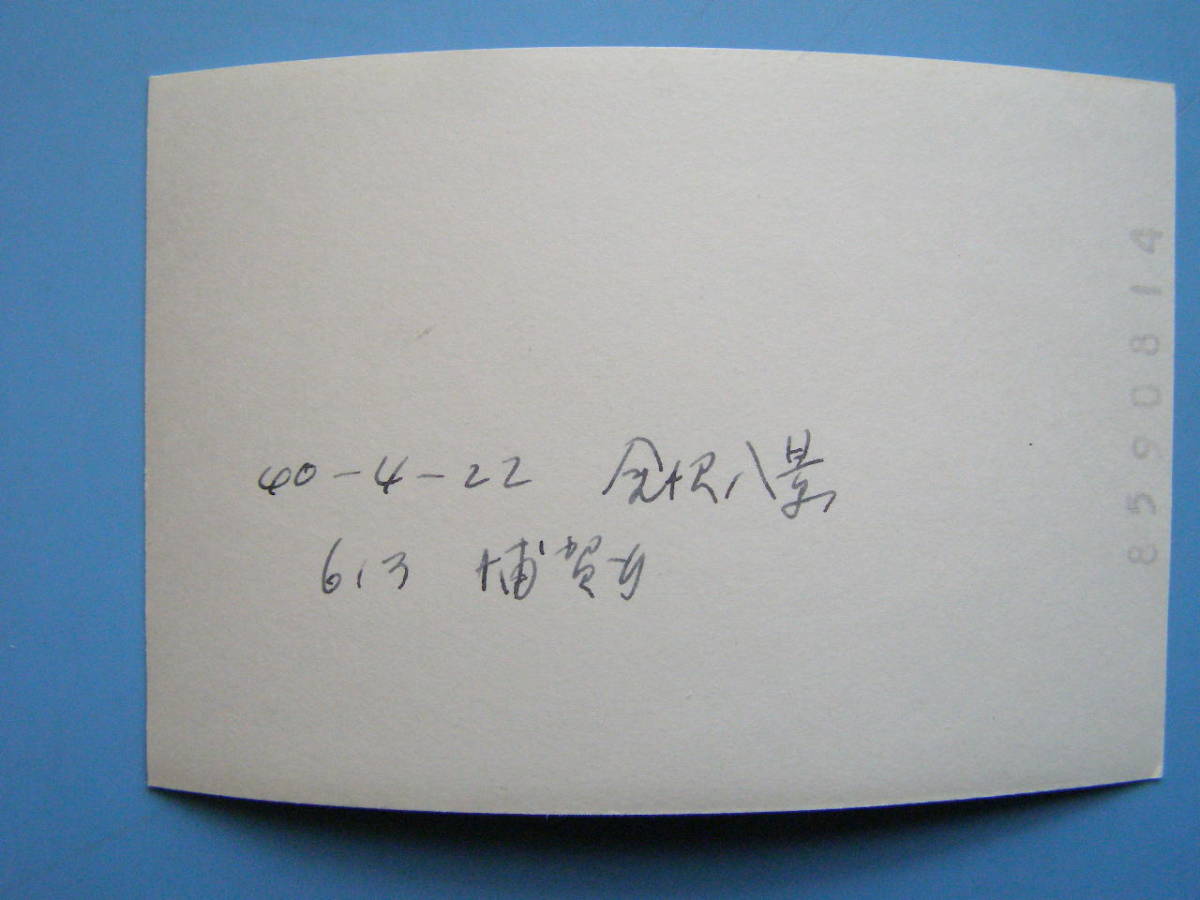 40-4-22 金沢八景
613 浦賀方
85908814